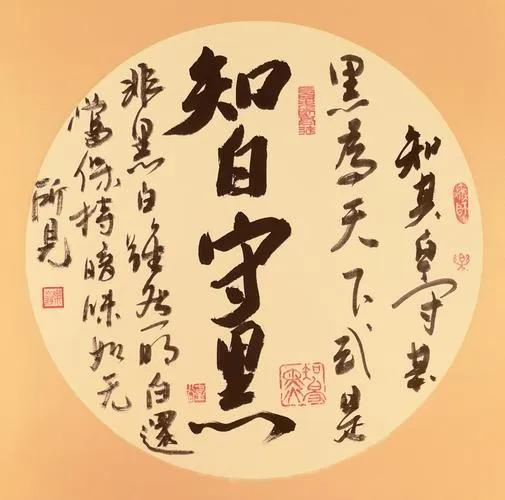 知其白守其
黑為天下式是
知白守黑
非黑白雖然明白還
當保持暗昧如无
所見